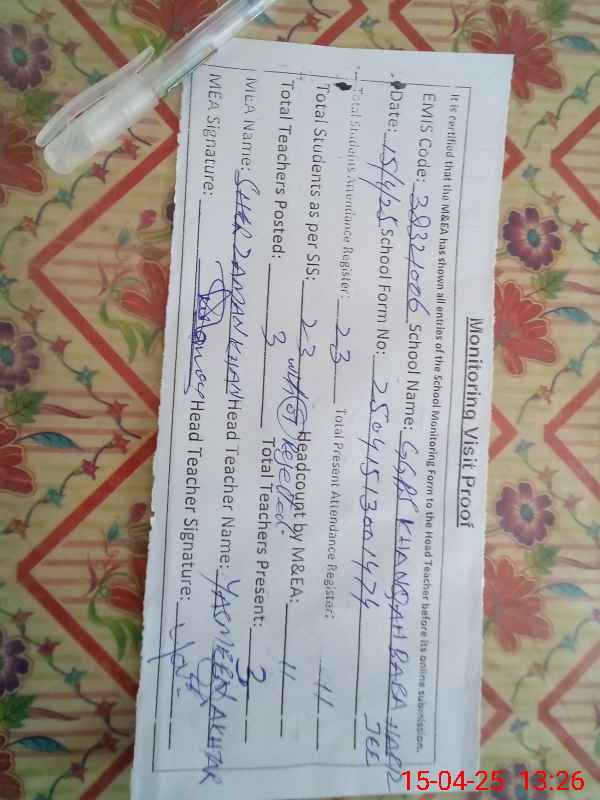 Monitoring Visit Proof
It is certified that the M&EA has shown all entries of the School Monitoring Form to the Head Teacher before its online submission.
EMIS Code: 38321006 School Name: GGPS KHANQAH BABA HAJI JEE
Date: 15/4/25 School Form No: 25041513001474
Total Students Attendance Register: 23 Total Present Attendance Register: 11
Total Students as per SIS: 23 Headcount by M&EA: 11
Total Teachers Posted: 3 Rejected. Total Teachers Present: 3
MEA Name: SHER ZAMAN KHAN Head Teacher Name: YASMEEN AKHTAR
MEA Signature: Head Teacher Signature:
15-04-25 13:26